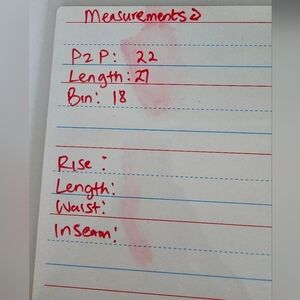 Measurements
P2P: 22
Length: 27
Bin: 18
Rise:
Length:
Waist:
Inseam: